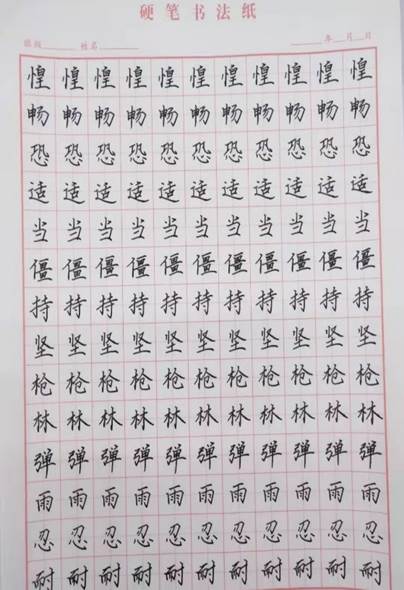 硬笔书法纸
班级 姓名 年 月 日
惶惶惶惶惶惶惶惶惶惶惶
畅畅畅畅畅畅畅畅畅畅畅
恐恐恐恐恐恐恐恐恐恐恐
适适适适适适适适适适适
当当当当当当当当当当当
僵僵僵僵僵僵僵僵僵僵僵
持持持持持持持持持持持
坚坚坚坚坚坚坚坚坚坚坚
枪枪枪枪枪枪枪枪枪枪枪
林林林林林林林林林林林
弹弹弹弹弹弹弹弹弹弹弹
雨雨雨雨雨雨雨雨雨雨雨
忍忍忍忍忍忍忍忍忍忍忍
耐耐耐耐耐耐耐耐耐耐耐